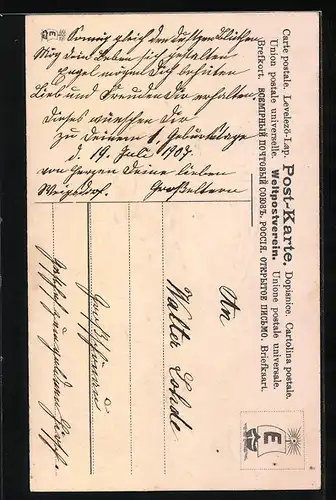 Sonnig gleich den duftgen Blüthen
Mög dein Leben sich gestalten
Engel mögen Dich behüten
Lieb und Freuden Dir erhalten
Dieses wünschen Dir
zu Deinem 1. Geburtstage
d. 19. Juli 1907.
von Herzen Deine lieben
Großeltern
Carte postale. Levelező-Lap. Post-Karte. Dopisnice. Cartolina postale.
Union postale universelle. Weltpostverein. Unione postale universale.
Brefkort. ВСЕМИРНЫЙ ПОЧТОВЫЙ СОЮЗЪ. РОССІЯ. ОТКРЫТОЕ ПИСЬМО. Briefkaart.
E
An
Walter Lohde